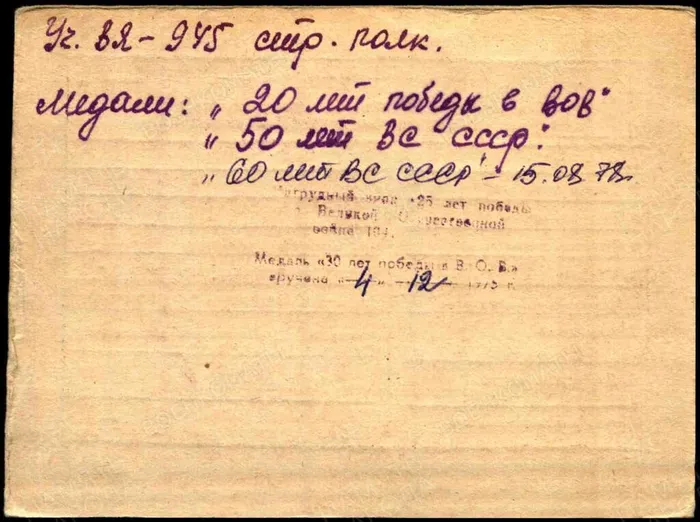 Уч. ВЯ-945 стр. полк.
Медали: „20 лет победы в ВОВ"
„50 лет ВС СССР".
„60 лет ВС СССР" - 15.02.78г.
Нагрудный знак «25 лет победы
Великой Отечественной
войне 194
Медаль «30 лет победы в В. О. В.»
вручена «4» 12 1975 г.